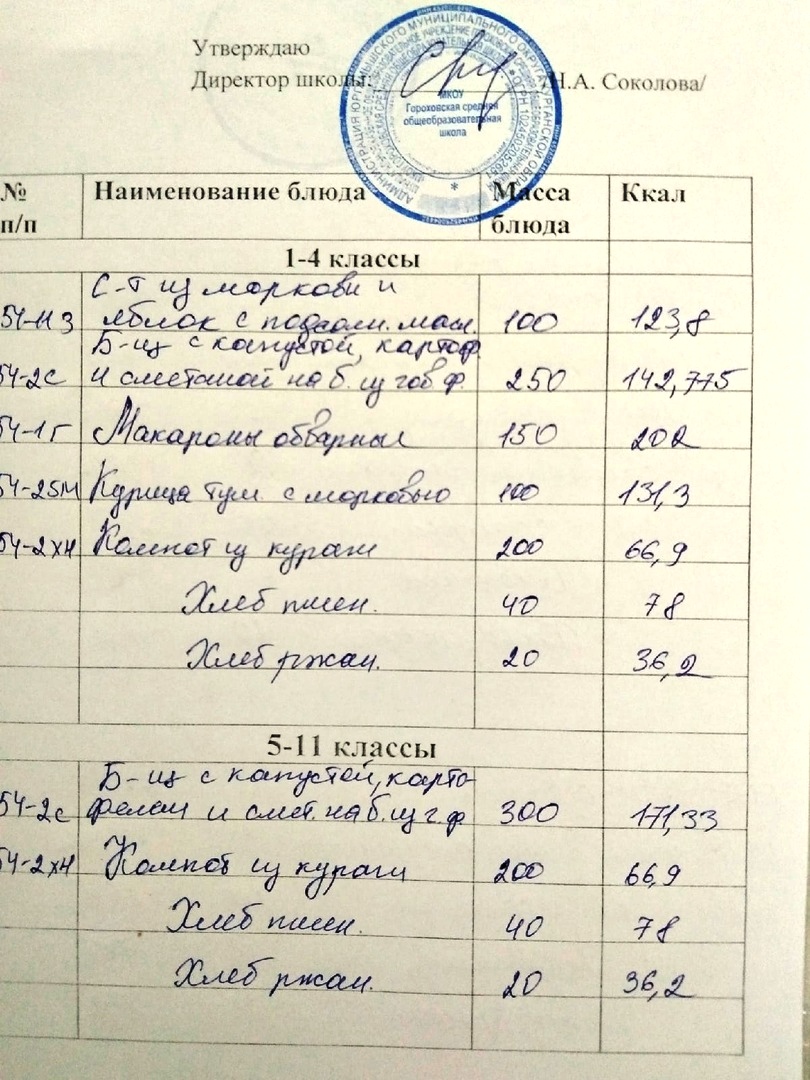 Утверждаю
Директор школы: /Н.А. Соколова/
МКОУ
Гороховская средняя
общеобразовательная
школа
№ п/п Наименование блюда Масса блюда Ккал
1-4 классы
С-т из моркови и
54-11з яблок с подсолн. масл. 100 123,8
Б-щ с капустой, картоф.
54-2с и сметаной на б. из гов. ф. 250 142,775
54-1г Макароны отварные 150 202
54-25м Курица туш с морковью 100 131,3
54-2хн Компот из кураги 200 66,9
Хлеб пшен. 40 78
Хлеб ржан. 20 36,2
5-11 классы
Б-щ с капустой, карто-
54-2с фелем и смет. на б. из г. ф. 300 171,33
54-2хн Компот из кураги 200 66,9
Хлеб пшен. 40 78
Хлеб ржан. 20 36,2